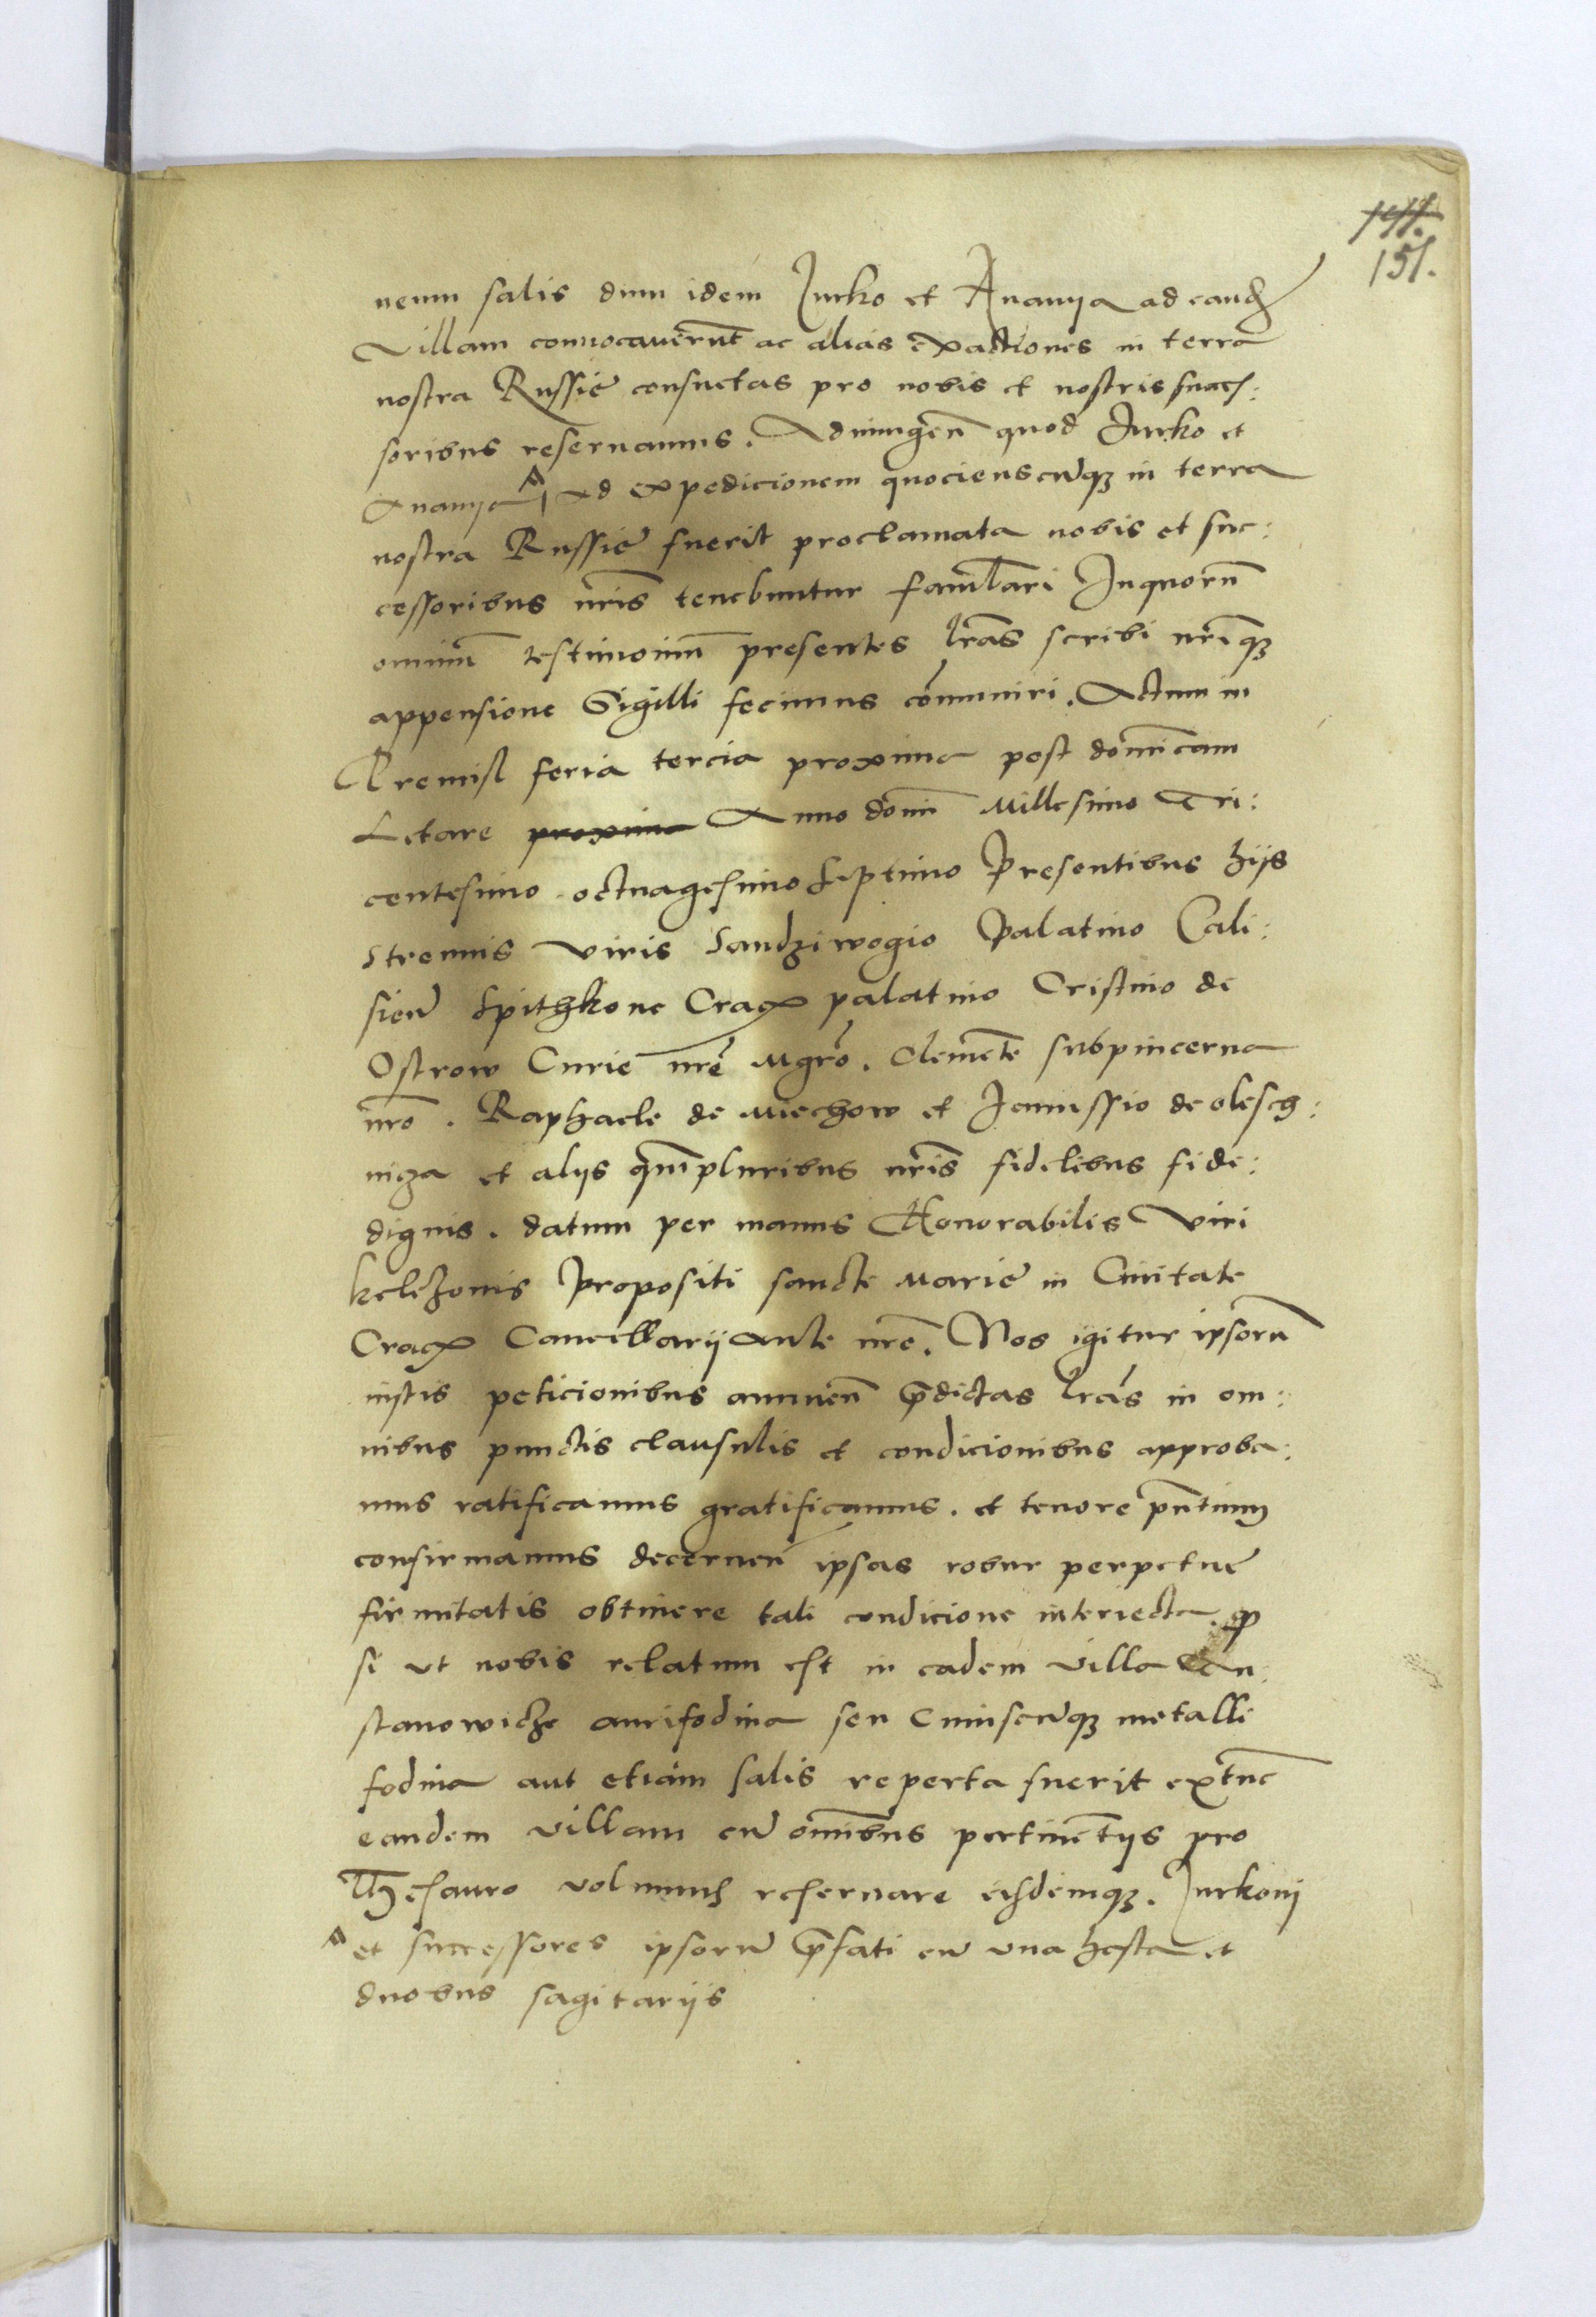 151.
neum salis dum idem Jurko et Ananya ad eand
Villam conuocauerunt ac alias exactiones in terra
nostra Russie consuetas pro nobis et nostris succes:
soribus reseruamus. Adiungen quod Jurko et
Ananya ad expedicionem quocienscunq in terra
nostra Russie fuerit proclamata nobis et suc:
cessoribus nris tenebuntur famulari Inquorum
omnium testimonium presentes lras scribi nrique
appensione Sigilli fecimus communiri. Actum in
Premisl feria tercia proxima post dominicam
Letare proxima Anno domini Millesimo Tri:
centesimo octuagesimo septimo Presentibus hijs
strenuis viris Sandziwogio Palatino Cali:
sien Spithkone Crac palatino Cristino de
Ostrow Curie nre Mgro. Clemente subpincerna
nro. Raphaele de Miechow et Janussio de olesch:
niza et alijs quampluribus nris fidelibus fide:
dignis. datum per manus Honorabilis Viri
kelczonis Propositi sancte Marie in Ciuitate
Crac Cancellarij aule nre. Nos igitur ipsorum
iustis peticionibus annuen predictas lras in om:
nibus punctis clausulis et condicionibus approba:
mus ratificamus gratificamus. et tenore pntium
confirmamus decernen ipsas robur perpetue
firmitatis obtinere tali condicione interiecta. q
si ut nobis relatum est in eadem villa
stanowicze aurifodina seu Cuiuscunq metalli
fodina aut etiam salis reperta fuerit extunc
eandem villam cum omnibus pertinentijs pro
Thesauro volumus reseruare eisdemq. Jurkoni
et successores ipsorum prefati cum una hasta et
duobus sagitarijs